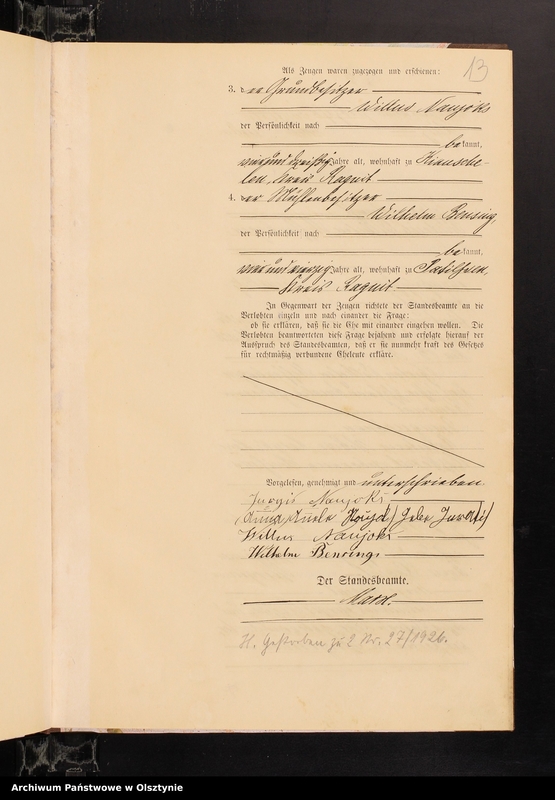 13
Als Zeugen waren zugezogen und erschienen:
3. der Grundbesitzer
Willus Naujoks
der Persönlichkeit nach
bekannt,
Jahre alt, wohnhaft zu
Kreis Ragnit
4. der Mühlenbesitzer
Wilhelm Bensing,
der Persönlichkeit nach
bekannt,
Jahre alt, wohnhaft zu
Kreis Ragnit
In Gegenwart der Zeugen richtete der Standesbeamte an die
Verlobten einzeln und nach einander die Frage:
ob sie erklären, daß sie die Ehe mit einander eingehen wollen. Die
Verlobten beantworteten diese Frage bejahend und erfolgte hierauf der
Ausspruch des Standesbeamten, daß er sie nunmehr kraft des Gesetzes
für rechtmäßig verbundene Eheleute erkläre.
Vorgelesen, genehmigt und unterschrieben
Jurgis Naujoks
Willus Naujoks
Wilhelm Bensing
Der Standesbeamte.
H. Gestorben zu E Nr. 27/1926.
Archiwum Państwowe w Olsztynie